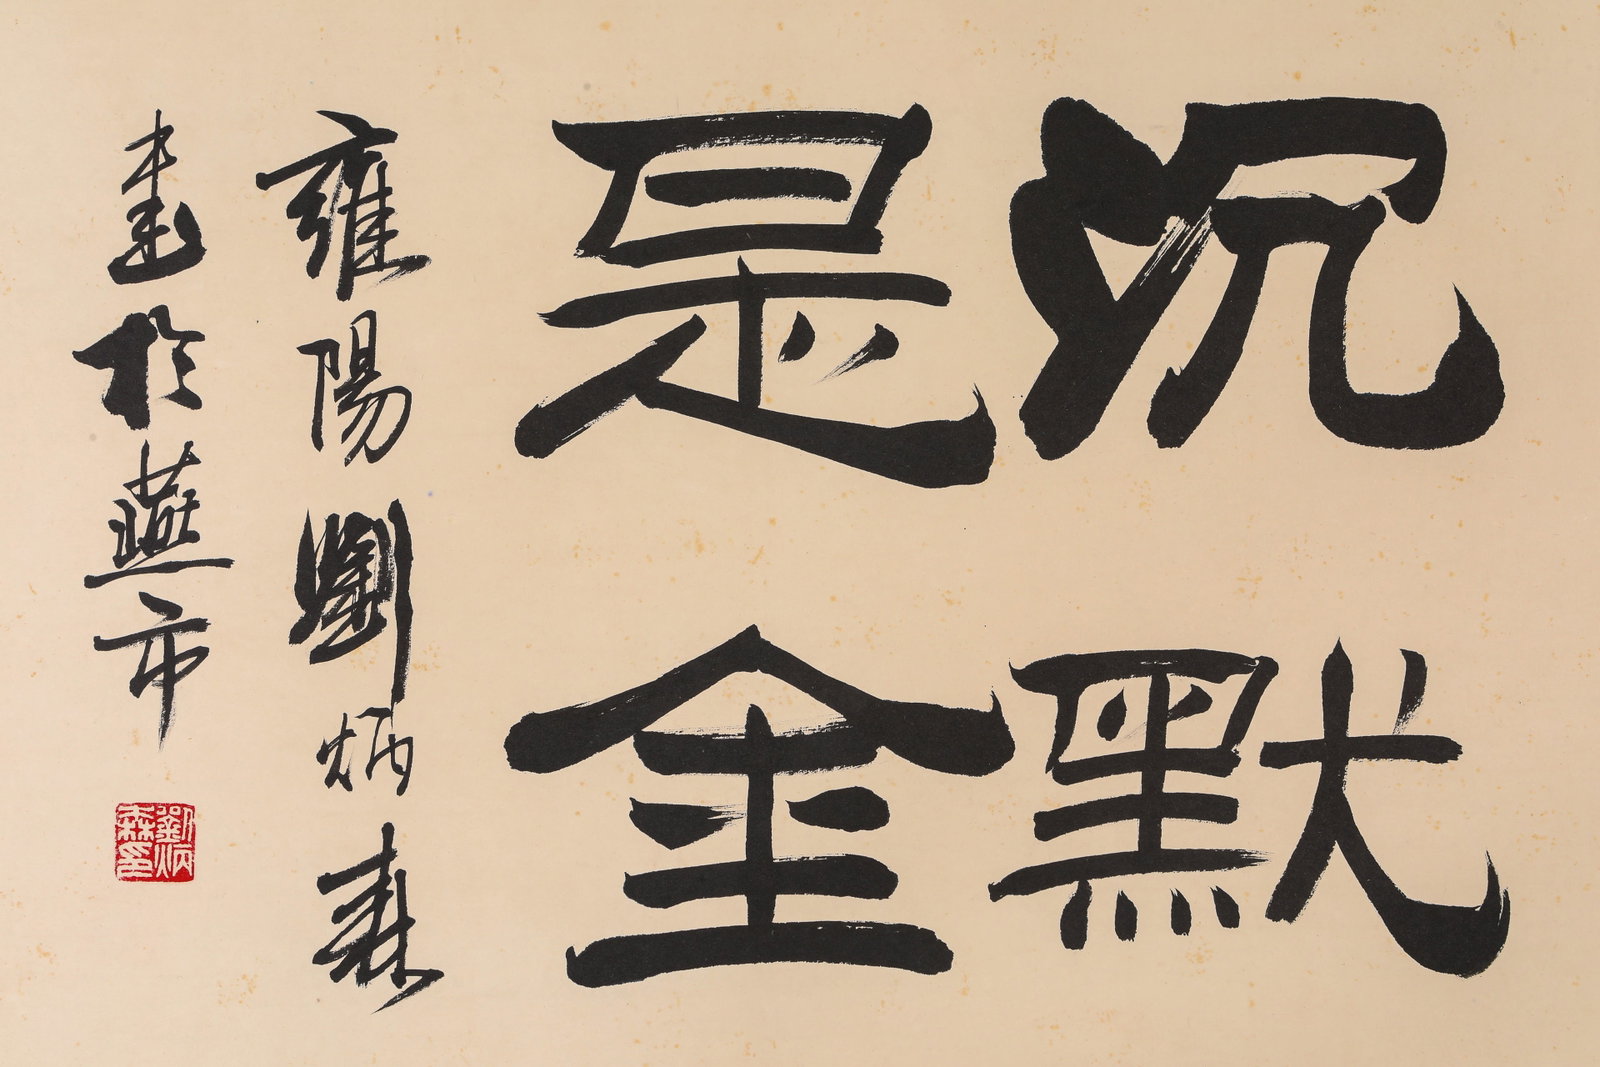 沉默
是金
雍陽劉炳森
書於燕市
劉炳
森印